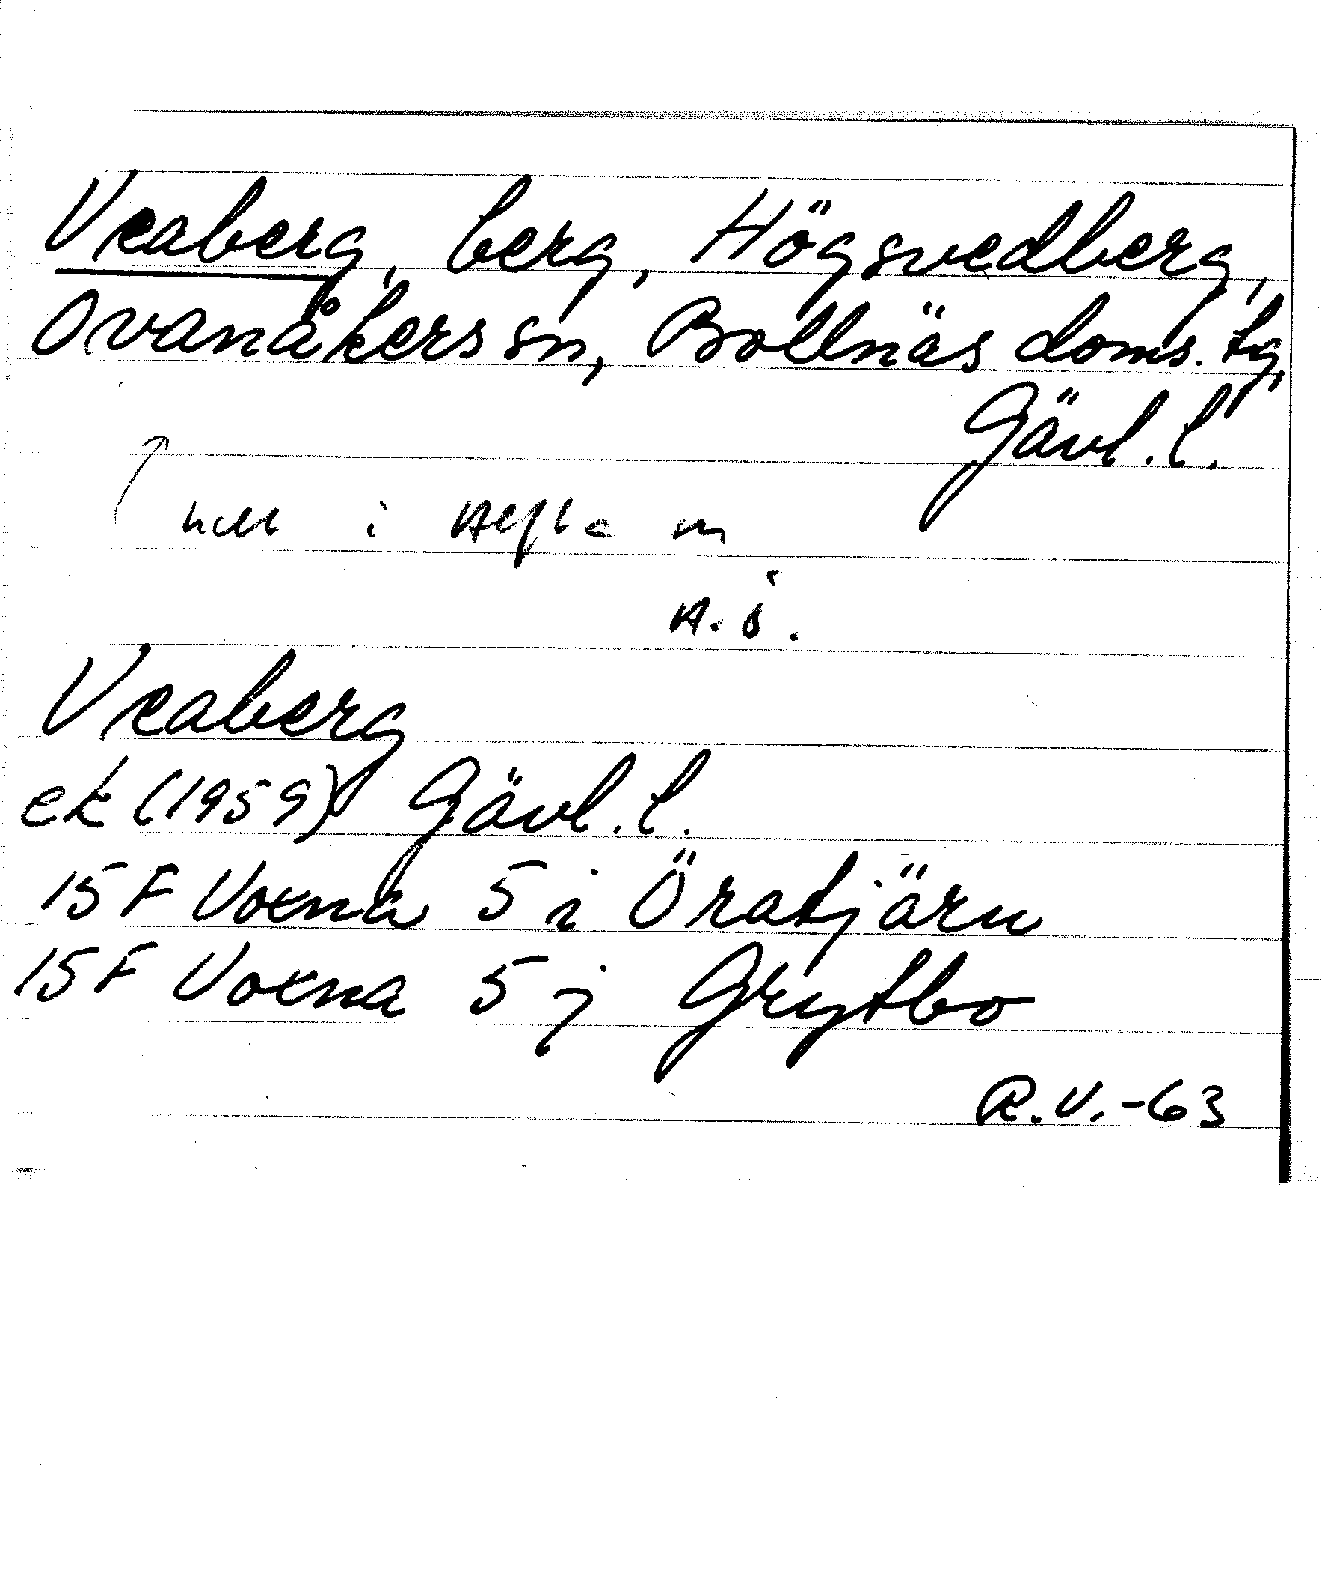 Veaberg, berg, Högsvedberg,
Ovanåkers sn, Bollnäs doms. tg,
Gävl. l.
i Alfta sn
A. Ö.
Veaberg
ek (1959) Gävl. l.
15 F Voxna 5 i Öratjärn
15 F Voxna 5 j Grytbo
R.V.-63